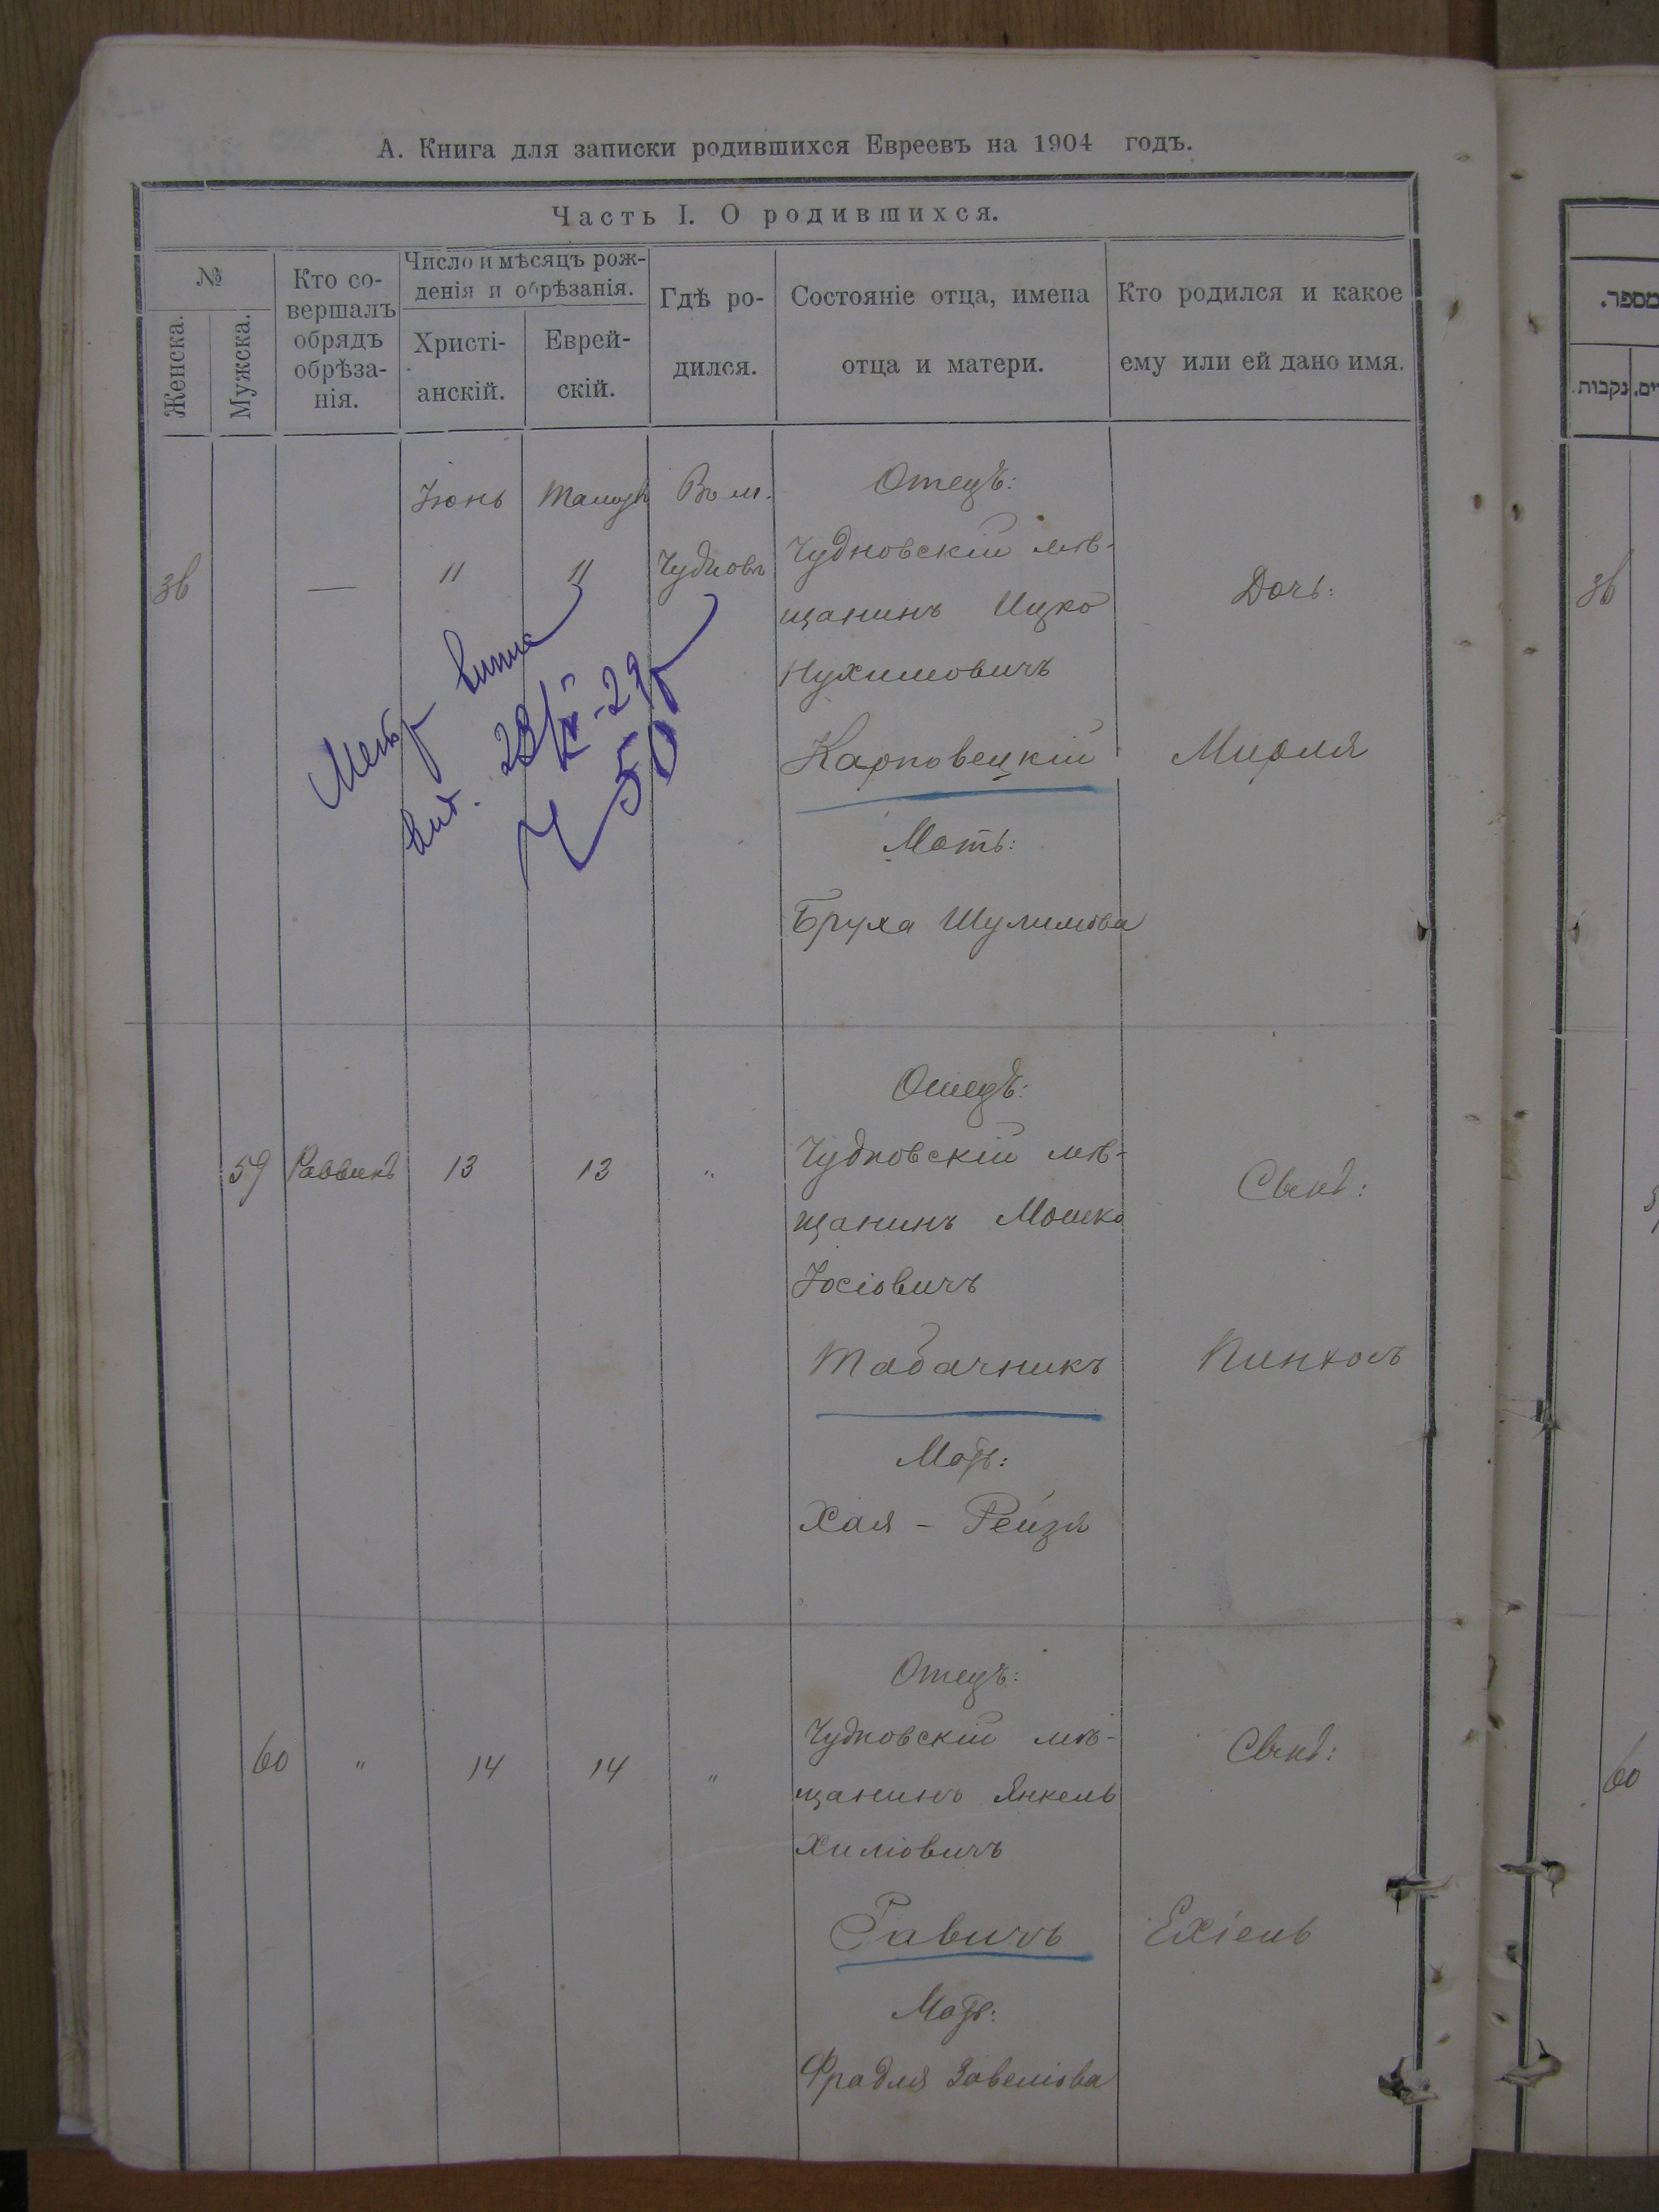 А. Книга для записки родившихся Евреевъ на 1904 годъ.
Часть I. О родившихся.
№
Женска.
Мужска.
Кто со-
вершалъ
обрядъ
обрѣза-
нія.
Число и мѣсяцъ рож-
денія и обрѣзанія.
Христі-
анскій.
Еврей-
скій.
Гдѣ ро-
дился.
Состояніе отца, имена
отца и матери.
Кто родился и какое
ему или ей дано имя.
מספר.
נקבות.
36
—
Іюнь
11
11
Въ м.
Чудновѣ
Отецъ:
Чудновскій мѣ-
щанинъ Ицко
Нухимовичъ
Карповецкій
Мать:
Бруха Шулимова
Дочь:
Мирля
Метр
вид. 28/ -29р
50
36
59
Раввинъ
13
13
"
Отецъ:
Чудновскій мѣ-
щанинъ Мошко
Іосіовичъ
Табачникъ
Мать:
Хая - Рейзя
Сынъ:
Пинхосъ
60
"
14
14
"
Отецъ:
Чудновскій мѣ-
щанинъ Янкель
Химіовичъ
Гавичъ
Мать:
Фрадля Завеліова
Сынъ:
Ехіель
60